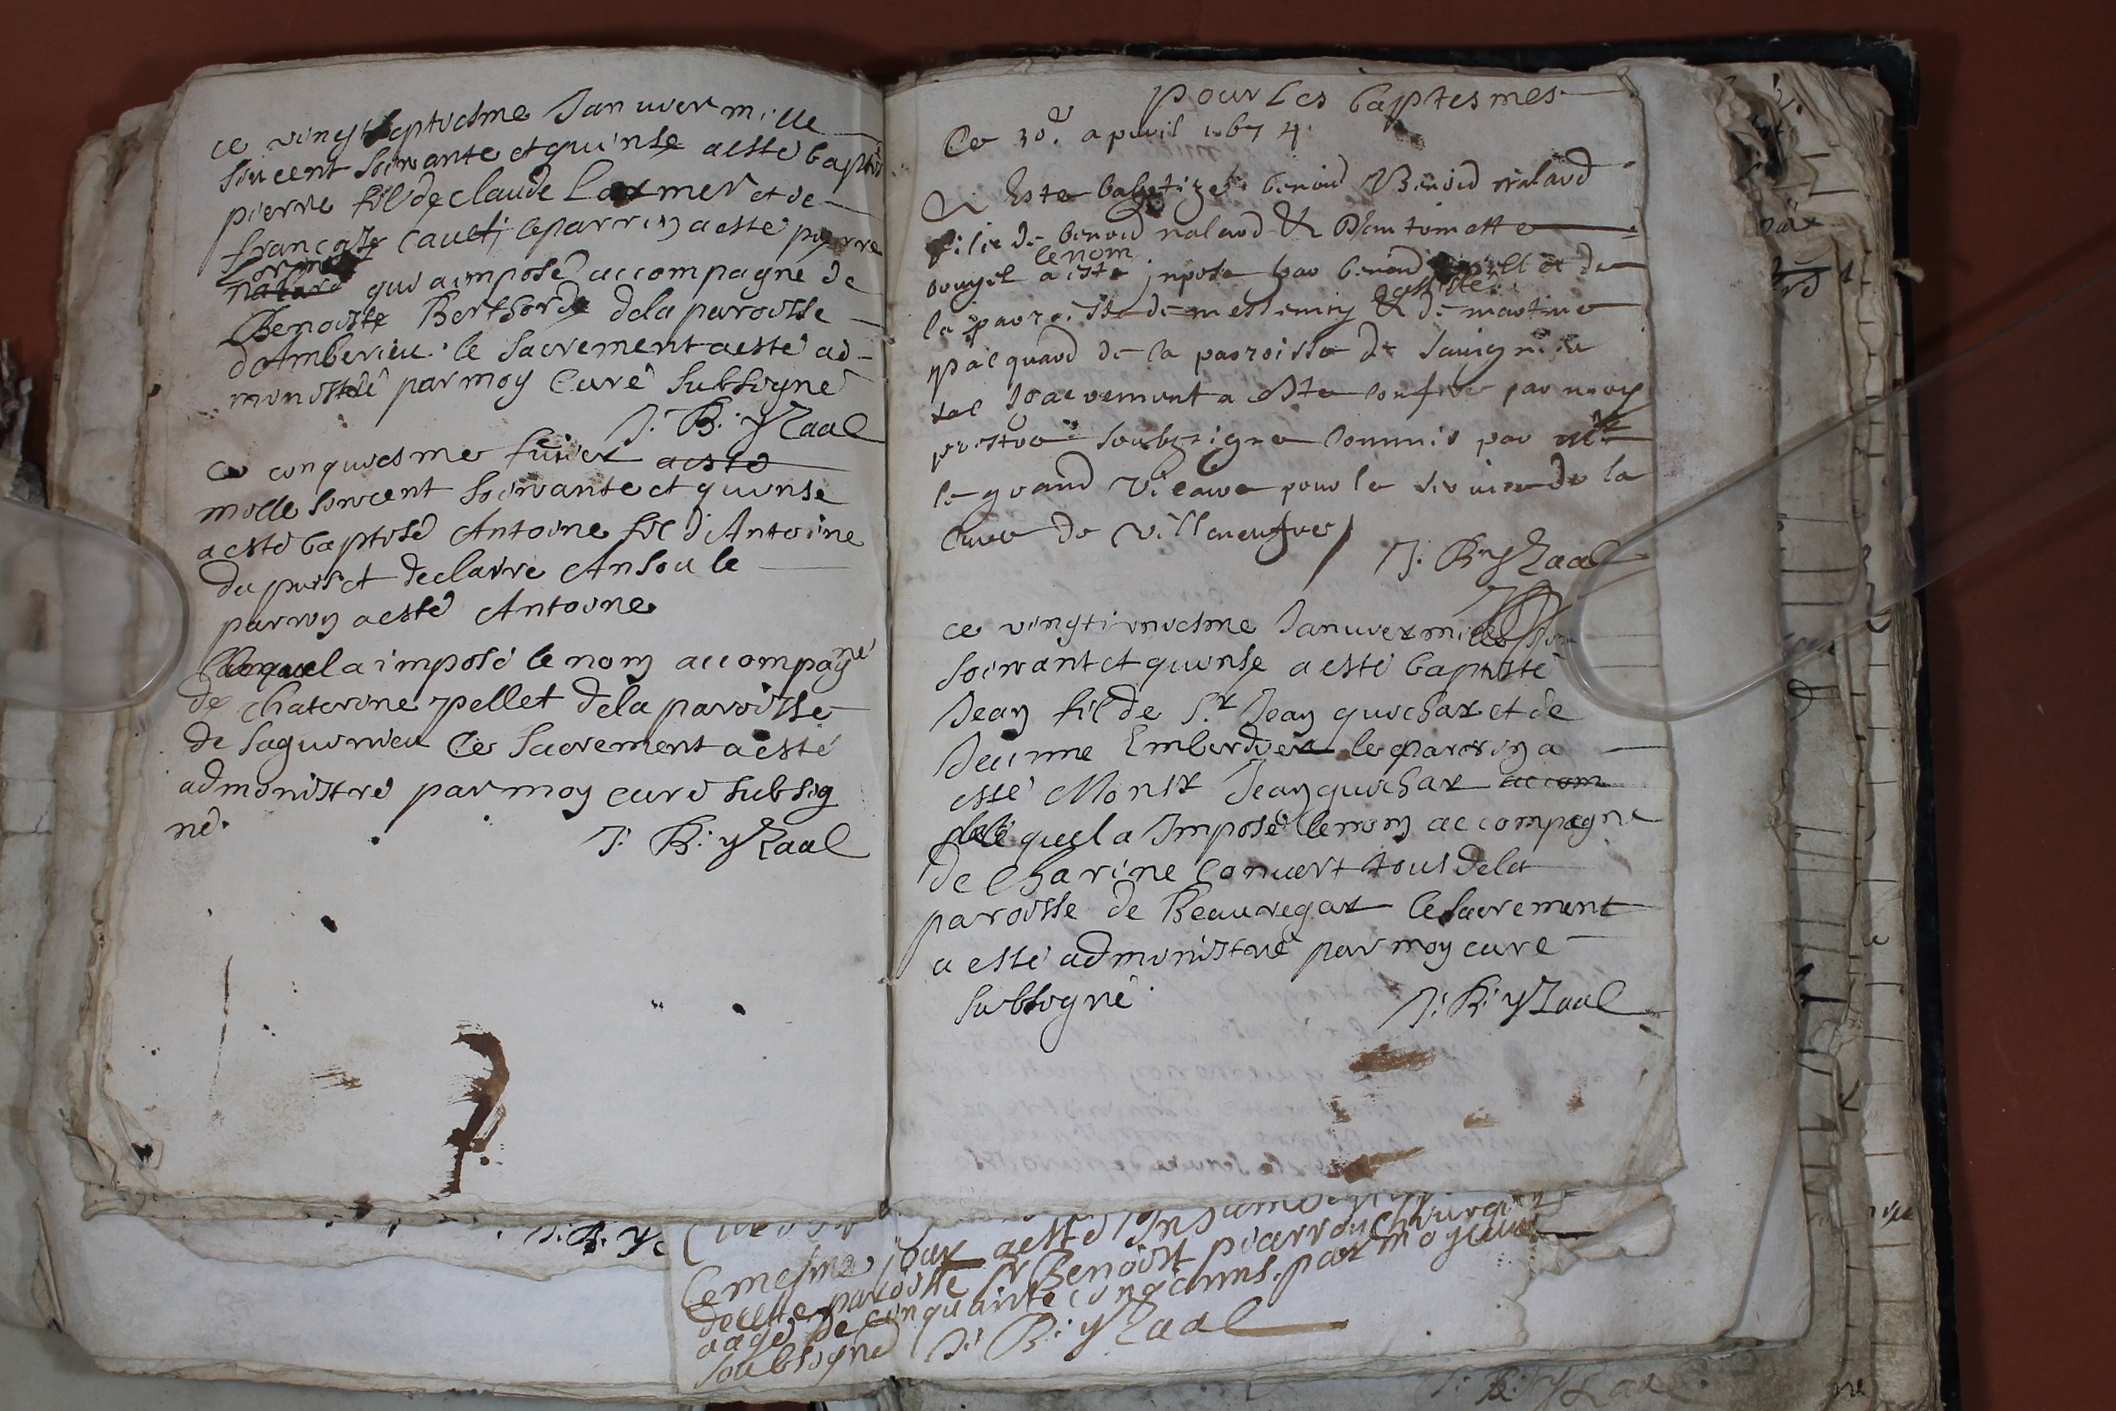 ce vingt septiesme Januier mille
sixcent soixante et quinse a esté baptisé
pierre fil de claude Lormer et de
françoise Cauet le parrin a esté pierre
Lormer
qui a imposé accompagne de
Benoiste Berthorde dela paroisse
d'Amberieu. le sacrement a esté ad-
ministré par moy Curé subsigné
J. B. yzaal
Ce cinquiesme feurier a esté
mille sixcent soixante et quinse
a esté baptisé Antoine fil d'Antoine
du puis et de claire Ansou le
parrin a esté Antoine
lequel a imposé le nom accompagné
de Chaterine pellet dela paroisse
de saguinieu le sacrement a esté
administré par moy curé subsig
né.
J. B. yzaal
pour les baptesmes
Ce 30e. apuril 1674.
A Esté babptizé benoid nalaud
filie de benoid nalaud & D'Antoinette
le nom
a esté inposé par benoid et de
la parroisse de messimy & de martine
assisté
pacquaud de la parroisse de sauignieu
tel sacrement a esté conferé par moy
prestre soubzsigné commis par Mr
le grand Vicaire pour le seruice de la
Cure de Villeneufue
J. B. yzaal
ce vingtiuniesme Januier mille six
soixant et quinse a esté baptisté
Jean fil de Sr. Jean quichar et de
Jeanne Emberdier le parrin a
esté Monsr Jean quichar accom
lequel a Imposé le nom accompagne
de Charine Conuert tous dela
paroisse de Beauregar le sacrement
a esté administré par moy curé
subsigné
J. B. yzaal
J. B. y
Ce mesme jour a esté
decette paroisse Sr Benoist pierron chirurgien
aagé de cinquante cinq anns. par moy curé
soubsigné J. B. yzaal
J. B. yzaal